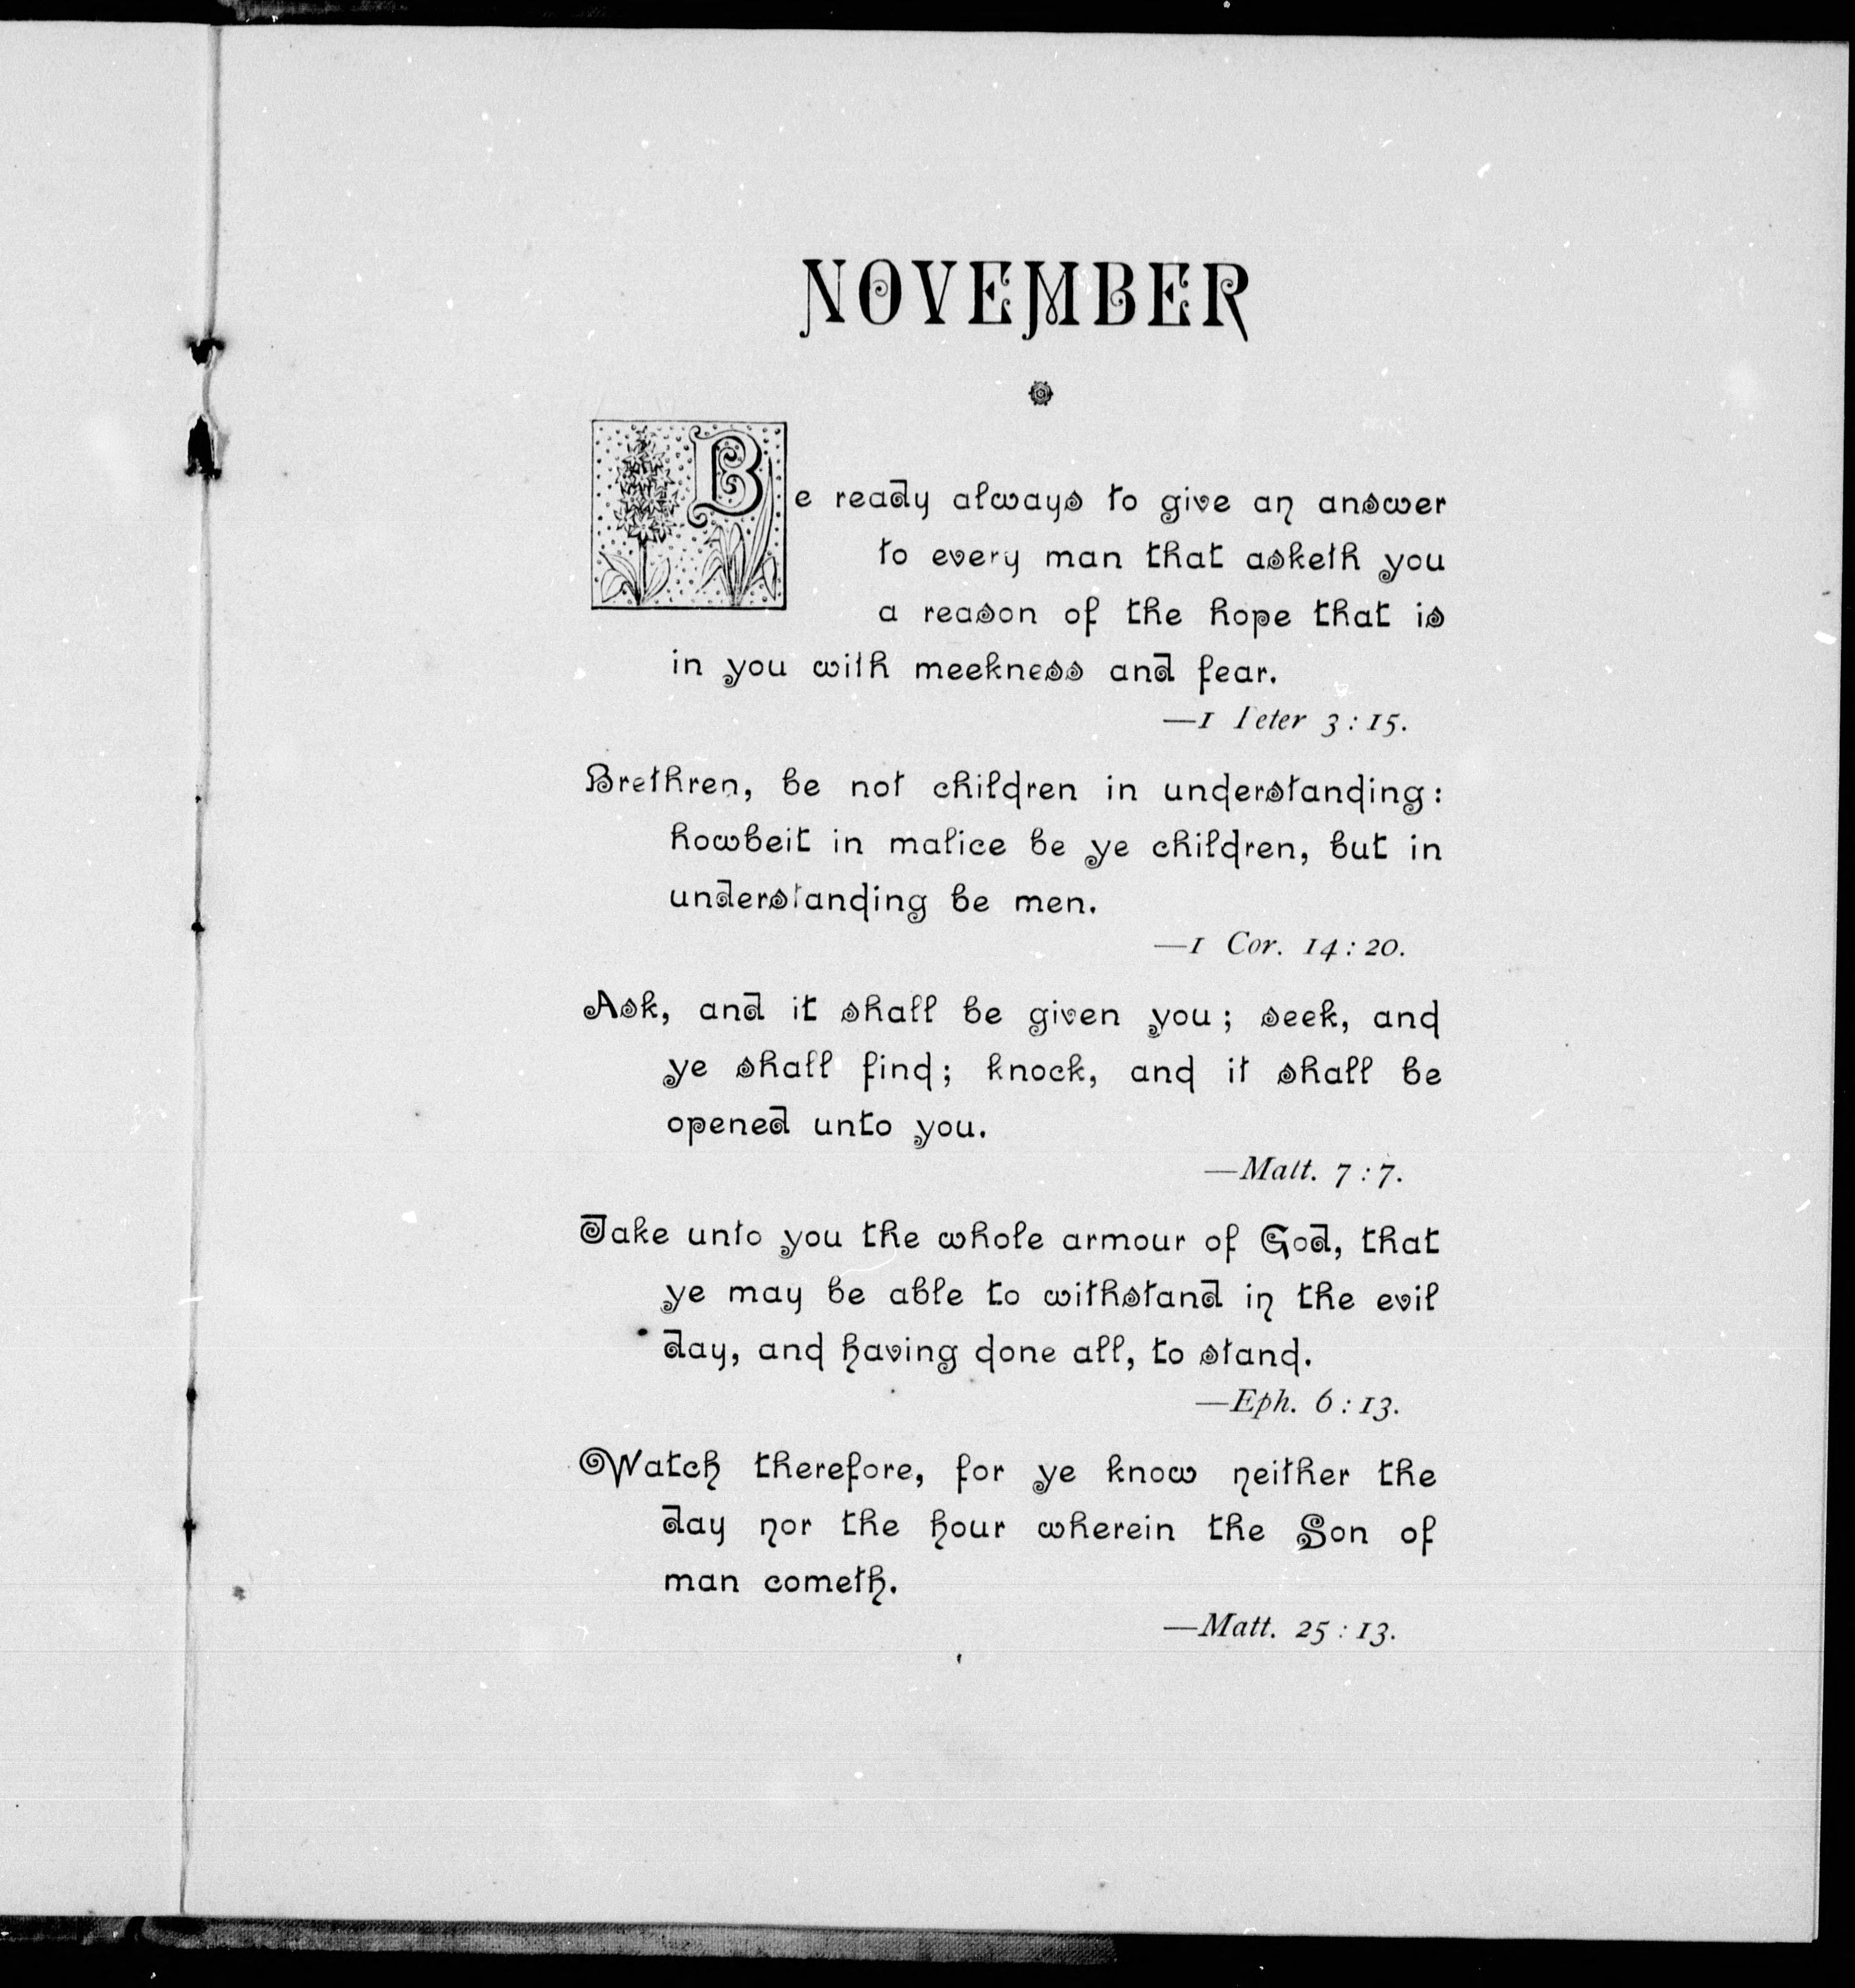 NOVEMBER
Be ready always to give an answer
to every man that asketh you
a reason of the hope that is
in you with meekness and fear.
—1 Peter 3:15.
Brethren, be not children in understanding:
howbeit in malice be ye children, but in
understanding be men.
—1 Cor. 14:20.
Ask, and it shall be given you; seek, and
ye shall find; knock, and it shall be
opened unto you.
—Matt. 7:7.
Take unto you the whole armour of God, that
ye may be able to withstand in the evil
day, and having done all, to stand.
—Eph. 6:13.
Watch therefore, for ye know neither the
day nor the hour wherein the Son of
man cometh.
—Matt. 25:13.